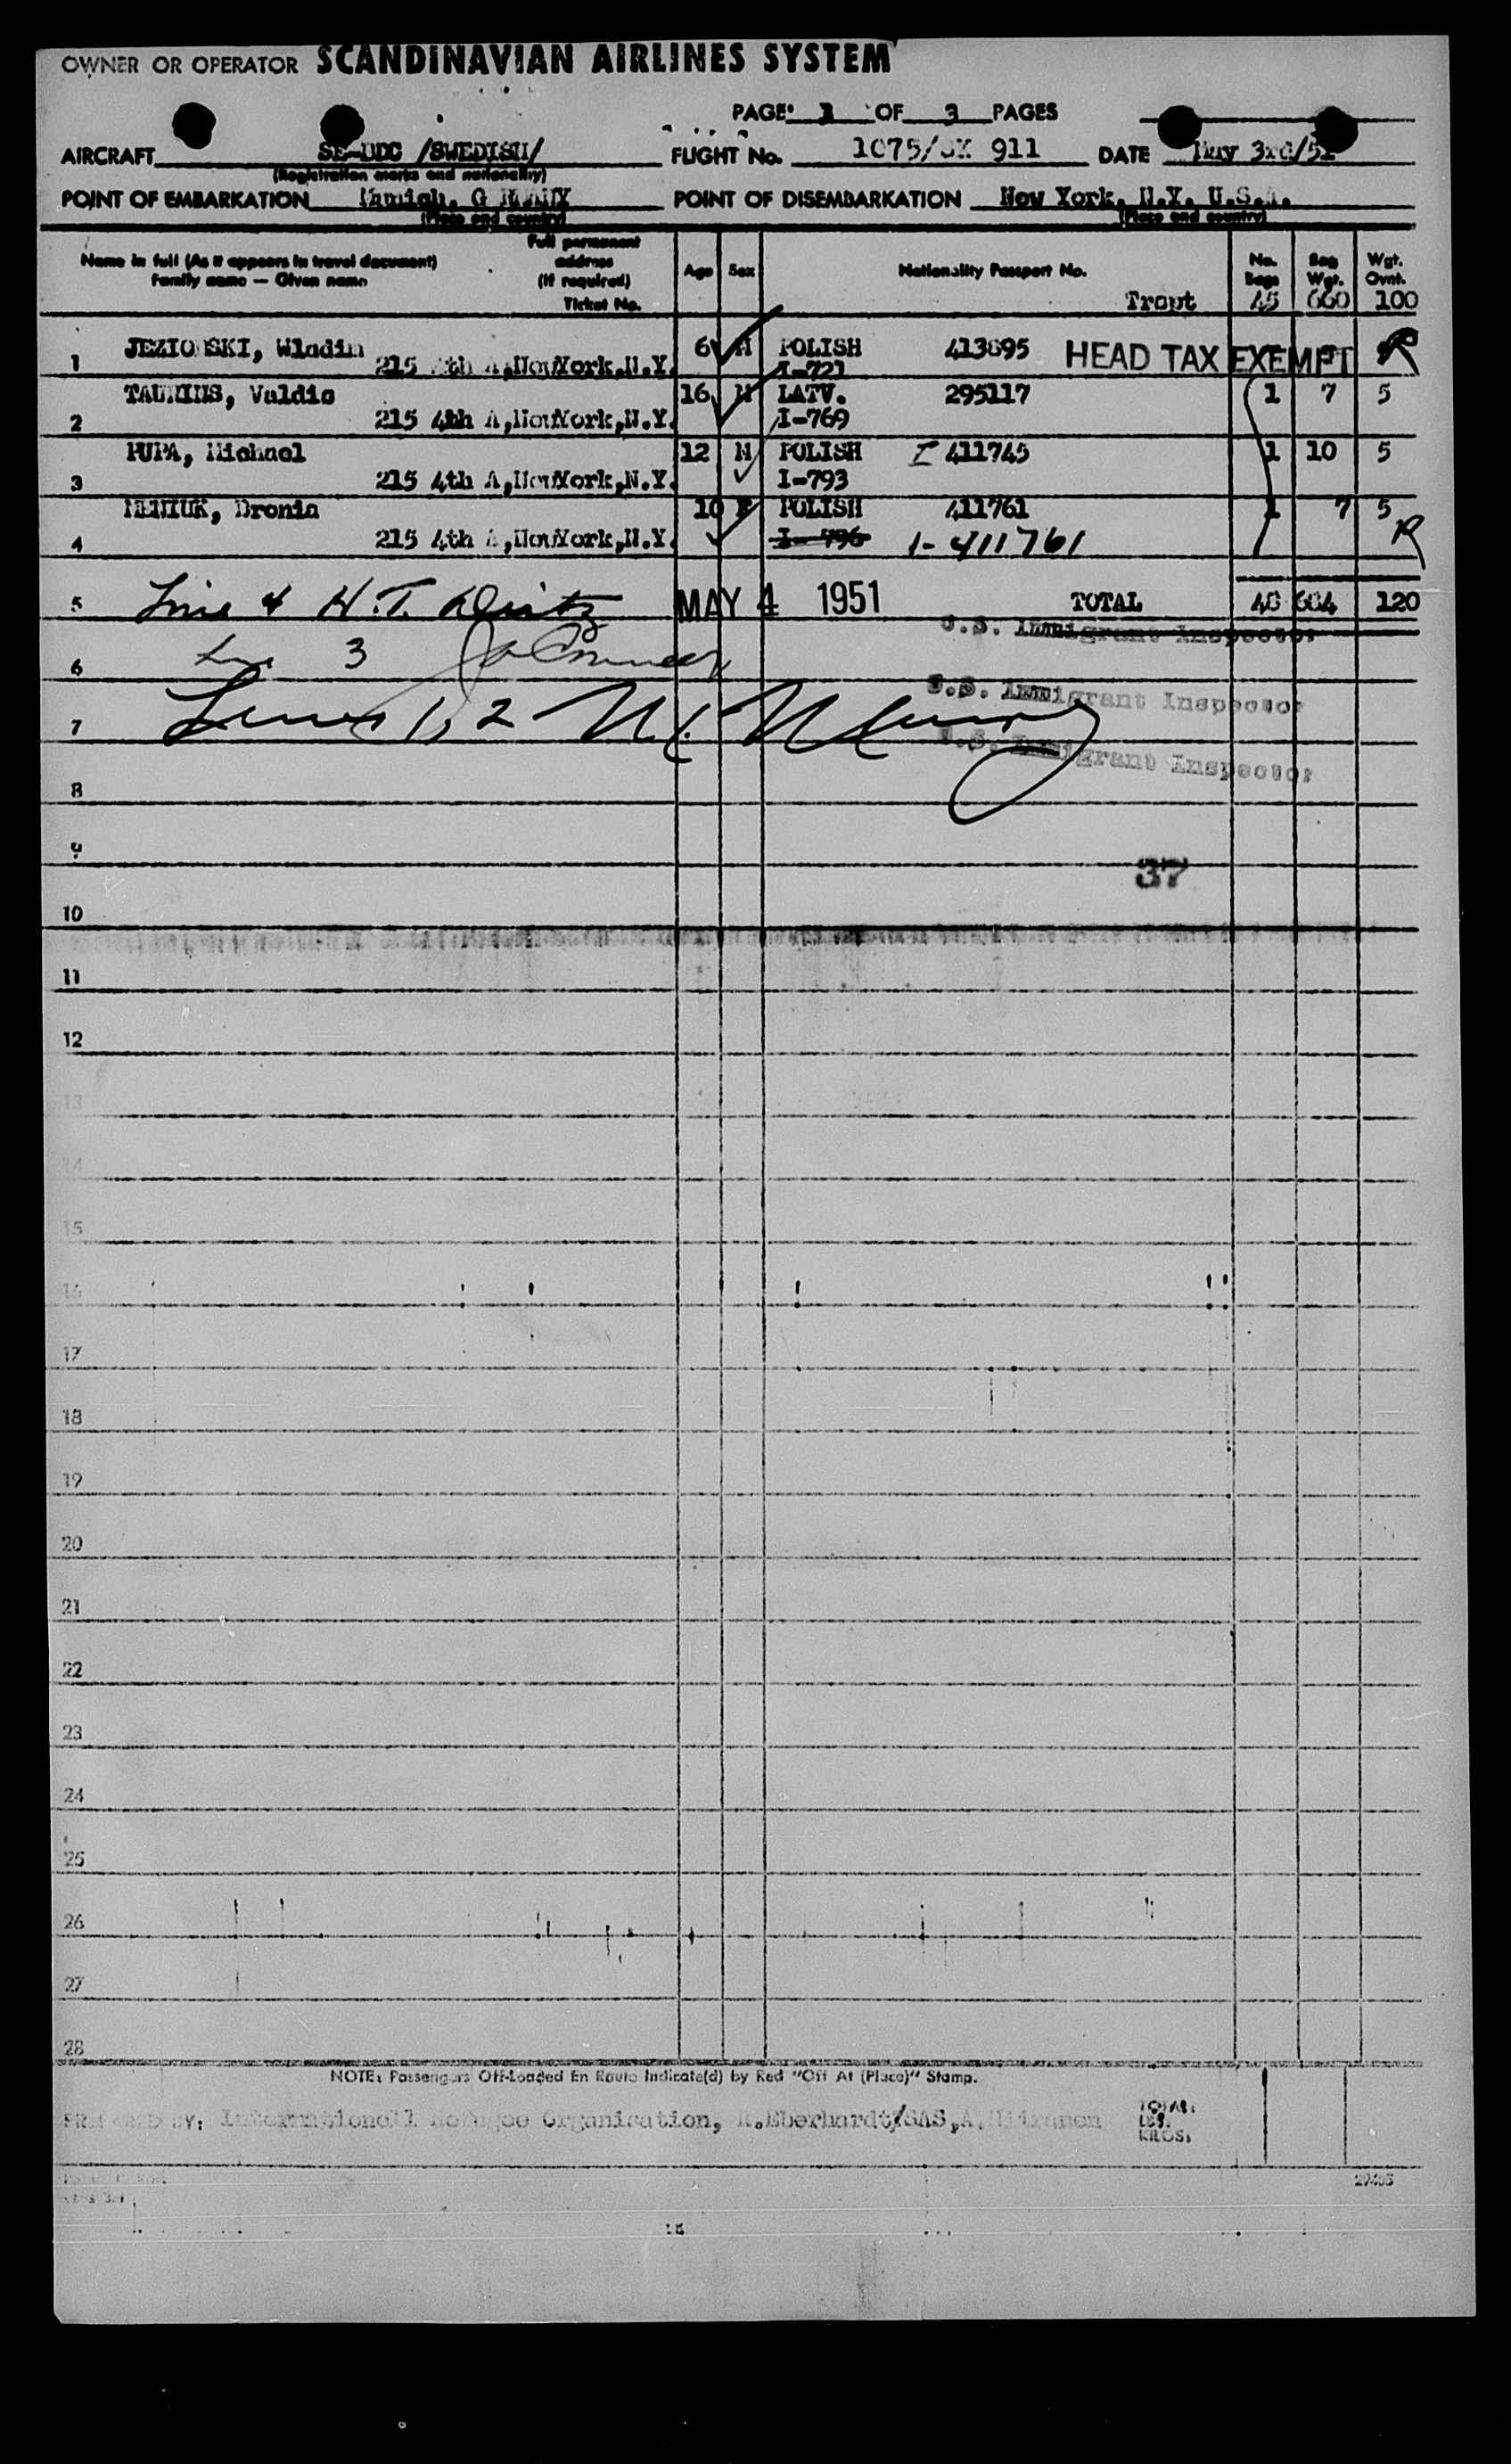 OWNER OR OPERATOR SCANDINAVIAN AIRLINES SYSTEM
PAGE 3 OF 3 PAGES
AIRCRAFT SE-BDC /SWEDISH/ FLIGHT No. 1075/SK 911 DATE May 3rd/51
(Registration marks and nationality)
POINT OF EMBARKATION Munich, GERMANY POINT OF DISEMBARKATION New York, N.Y. U.S.A.
(Place and country) (Place and country)
Name in full (As it appears in travel document) Family name — Given name
Full permanent address (If required) Ticket No.
Age Sex Nationality Passport No. No. Bags Bag Wgt. Wgt. Ovnt.
45 660 100
1 JEZIORSKI, Wladim 6 M POLISH 413695 HEAD TAX EXEMPT R
215 4th A,NewYork,N.Y. I-721
2 TAURINS, Valdis 16 M LATV. 295117 1 7 5
215 4th A,NewYork,N.Y. I-769
3 PUPA, Michael 12 M POLISH I 411745 1 10 5
215 4th A,NewYork,N.Y. I-793
4 Bronia 10 F POLISH 411761 1 7 5
215 4th A,NewYork,N.Y. I-796 1-411761 R
5 Line 4 H.T. MAY 4 1951 TOTAL 48 684 120
U.S. Immigrant Inspector
6 3
U.S. Immigrant Inspector
7 Lines 1, 2
U.S. Immigrant Inspector
8
9
37
10
11
12
13
14
15
16
17
18
19
20
21
22
23
24
25
26
27
28
NOTE: Passengers Off-Loaded En Route Indicate(d) by Red "Off At (Place)" Stamp.
PREPARED BY: Internationell Refugee Organisation, R.Eberhardt/SAS,A.
TOTAL:
LBS.
KILOS: